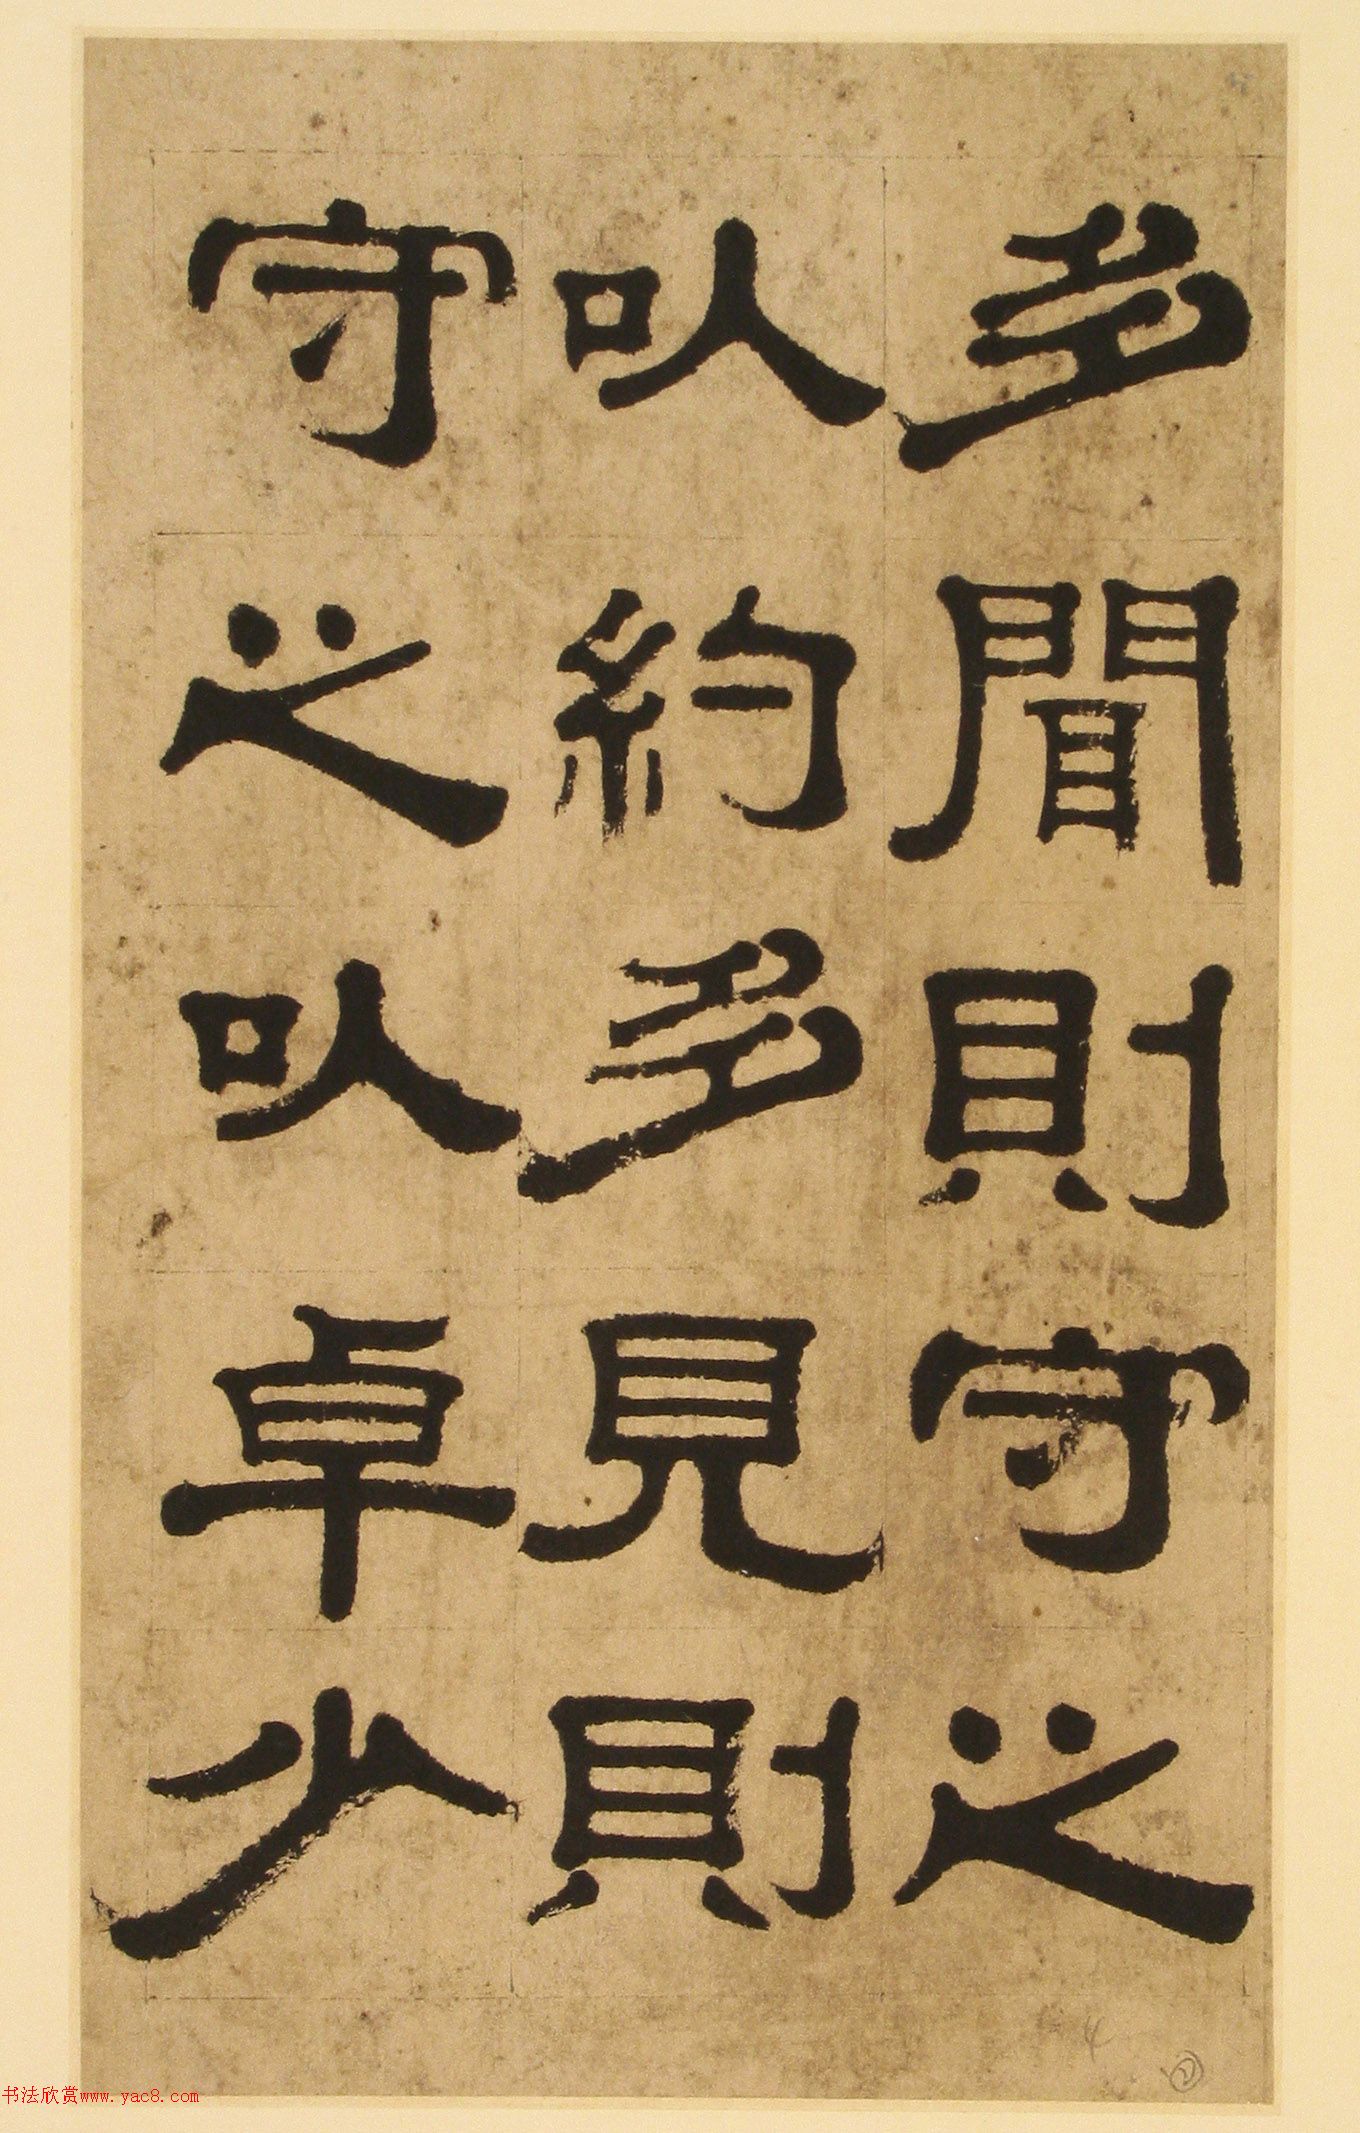 多聞則守之
以約多見則
守之以卓少
4
书法欣赏www.yac8.com